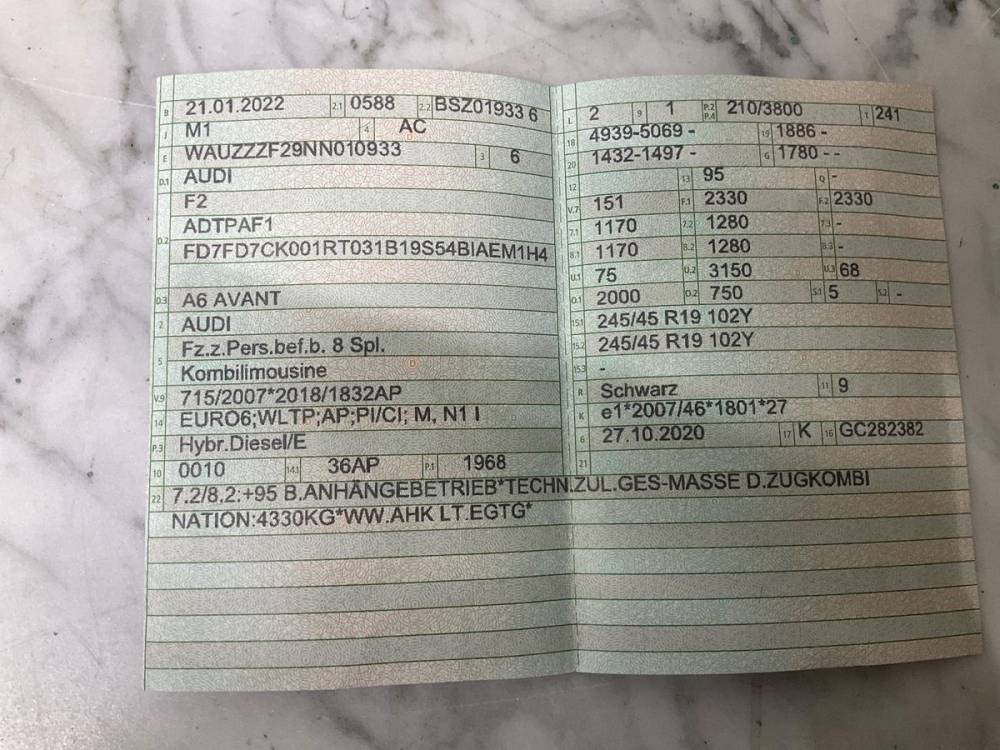 B 21.01.2022 2.1 0588 2.2 BSZ01933 6
J M1 4 AC
E WAUZZZF29NN010933 3 6
D.1 AUDI
F2
D.2 ADTPAF1
FD7FD7CK001RT031B19S54BIAEM1H4
D.3 A6 AVANT
2 AUDI
5 Fz.z.Pers.bef.b. 8 Spl.
Kombilimousine
V.9 715/2007*2018/1832AP
14 EURO6;WLTP;AP;PI/CI; M, N1 I
P.3 Hybr.Diesel/E
10 0010 14.1 36AP P.1 1968
22 7.2/8.2:+95 B.ANHÄNGEBETRIEB*TECHN.ZUL.GES-MASSE D.ZUGKOMBI
NATION:4330KG*WW.AHK LT.EGTG*
L 2 9 1 P.2 P.4 210/3800 T 241
18 4939-5069 - 19 1886 -
20 1432-1497 - G 1780 - -
12 13 95 Q -
V.7 151 F.1 2330 F.2 2330
7.1 1170 7.2 1280 7.3 -
8.1 1170 8.2 1280 8.3 -
U.1 75 U.2 3150 U.3 68
O.1 2000 O.2 750 S.1 5 S.2 -
15.1 245/45 R19 102Y
15.2 245/45 R19 102Y
15.3 -
R Schwarz 11 9
K e1*2007/46*1801*27
6 27.10.2020 17 K 16 GC282382
21